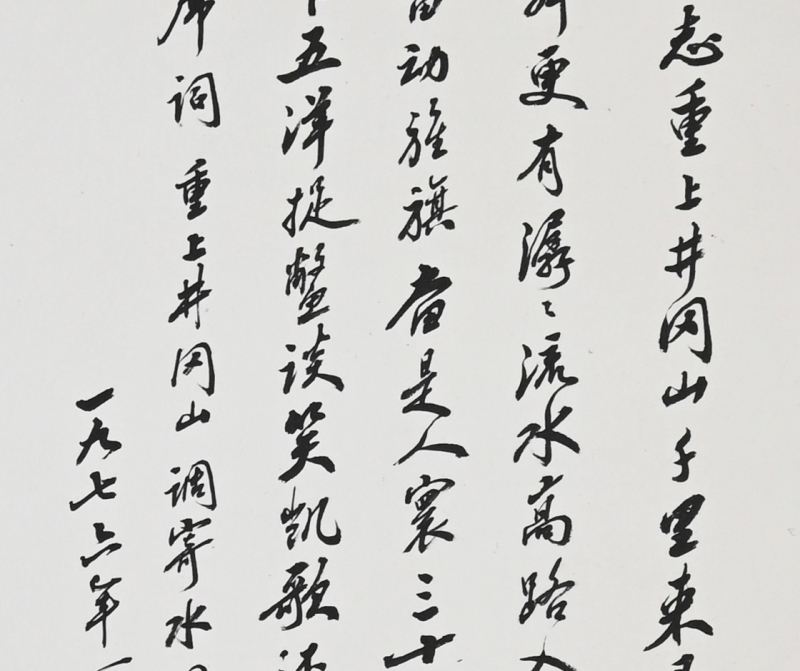 志重上井冈山千里来
更有潺〻流水高路入
动旌旗奋是人寰三十
五洋捉鳖谈笑凯歌
席词 重上井冈山 调寄水
一九七六年一